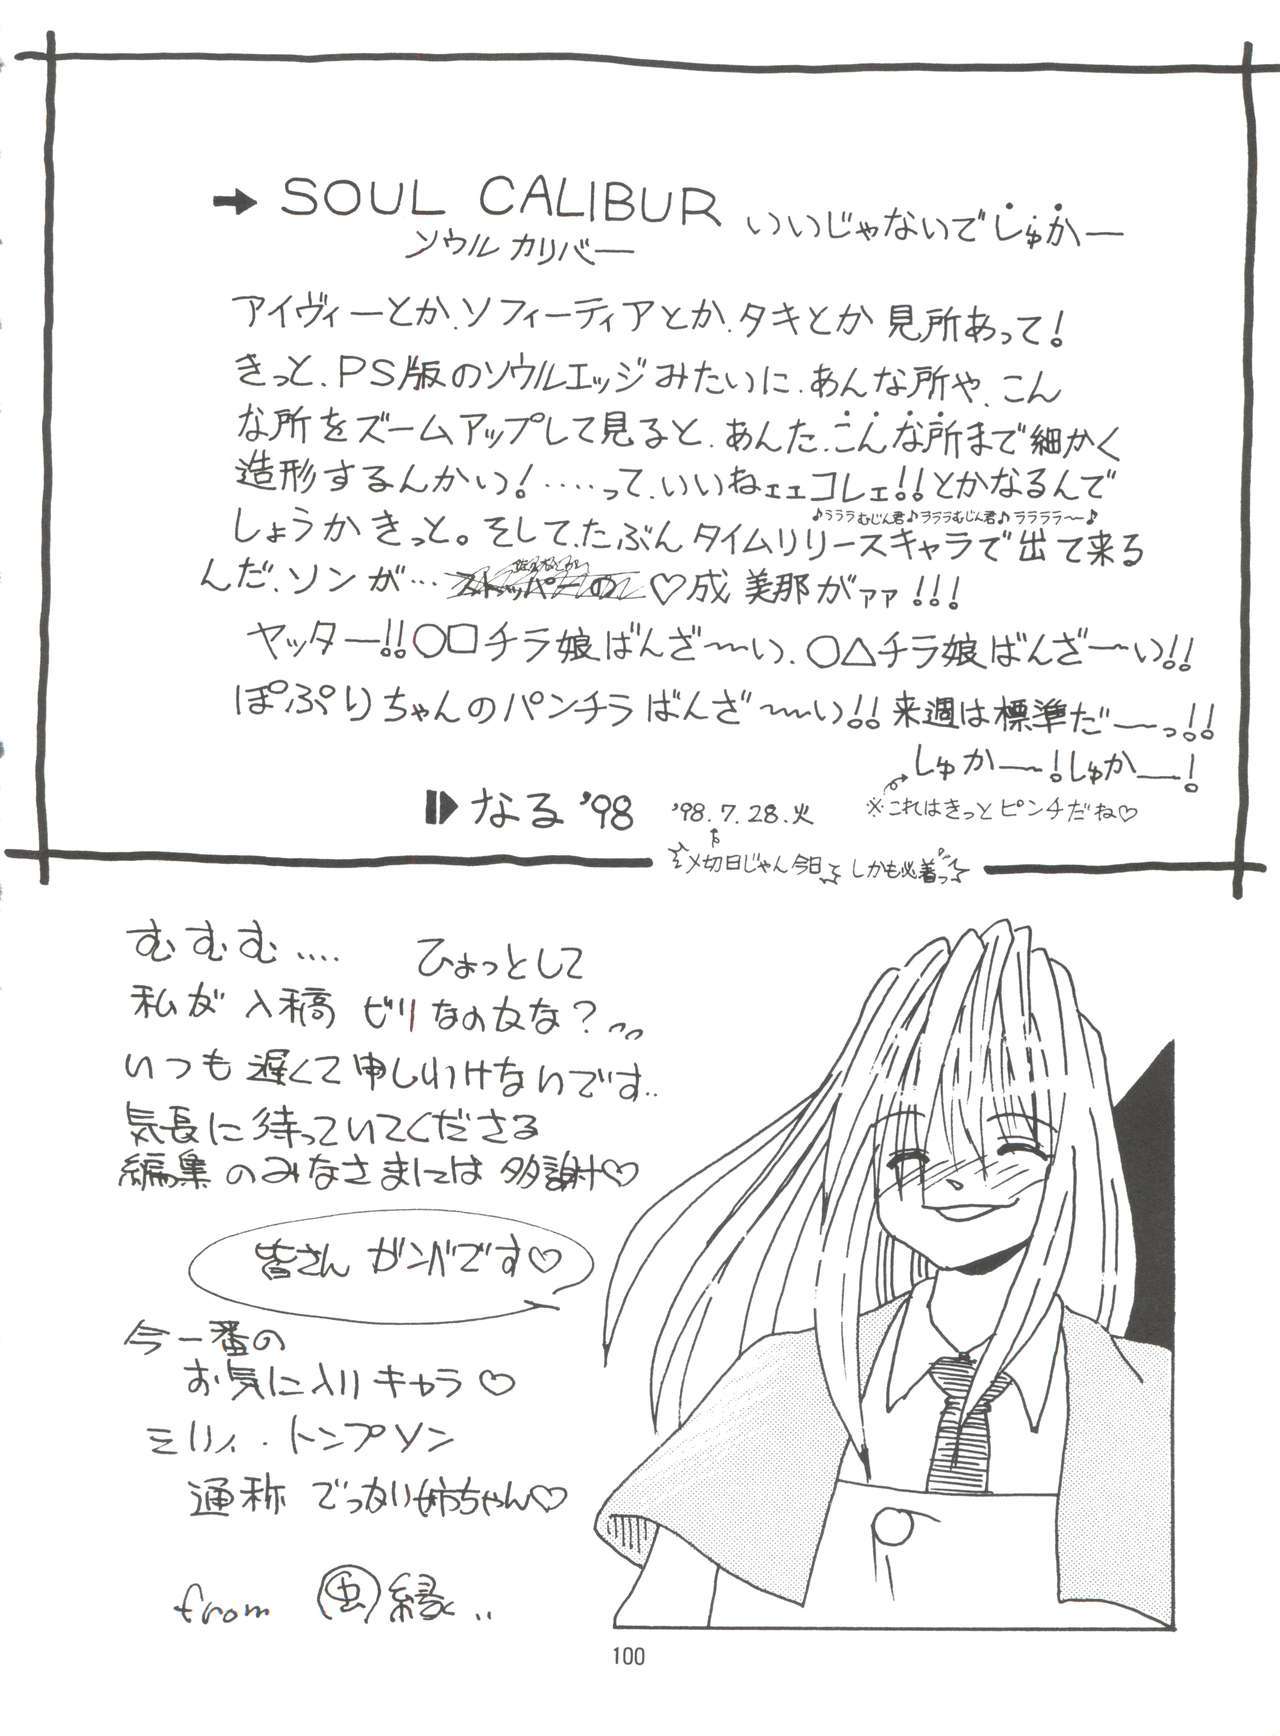 ➡ SOUL CALIBUR いいじゃないでしゅかー
ソウル カリバー
アイヴィーとか、ソフィーティアとか、タキとか 見所あって!
きっと、PS版のソウルエッジみたいに、あんな所や、こん
な所をズームアップして見ると、あんた、こんな所まで細かく
造形するんかい!……って、いいねェェコレェ!!とかなるんで
♪ラララむじん君♪ラララむじん君♪ララララ〜♪
しょうかきっと。そして、たぶんタイムリリースキャラで出て来る
んだ、ソンが… ♡成美那がァァ!!!
ヤッター!!○□チラ娘ばんざ〜い、○△チラ娘ばんざ〜い!!
ぽぷりちゃんのパンチラばんざ〜い!!来週は標準だーっ!!
しゅかー!しゅかー!
※これはきっとピンチだね♡
なる '98
'98.7.28.火
〆切日じゃん今日 しかも必着っ
むむむ‥‥ ひょっとして
私が入稿ビリなのかな?
いつも遅くて申しわけないです‥
気長に待っていてくださる
編集のみなさまには多謝♡
皆さん ガンバです♡
今一番の
お気に入りキャラ♡
ミリィ・トンプソン
通称 でっかい姉ちゃん♡
from 虫縁‥
100